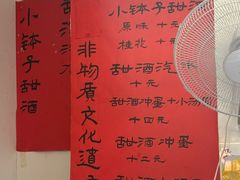 小钵子甜酒
甜酒
非物质文化遗
小钵子甜酒
原味 十元
桂花 十元
甜酒汽水
十元
甜酒冲蛋+小汤圆
十四元
甜酒冲蛋
十二元